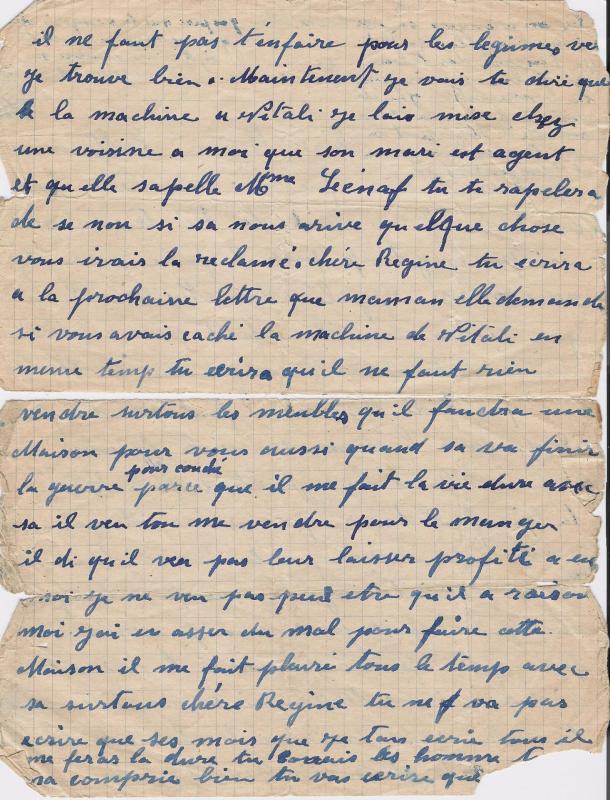 il ne faut pas t'enfaire pour les legumes ve
ye trouve bien. Maintenent ye vais te dire que
la machine a Vitali ye lais mise chez
une voisine a moi que son mari est agent
et qu elle sapelle Mme Liénaf tu te rapelera
de se non si sa nous arive quelque chose
vous irais la reclamé. chére Regine tu ecrira
a la prochaine lettre que maman elle demande
si vous avais caché la machine de Vitali en
meme temp tu ecrira qu'il ne faut rien
vendre surtous les meubles qu'il faudra une
Maison pour vous aussi quand sa va finir
pour couché
la guerre parce que il me fait la vie dure avec
sa il veu tou me vendre pour le manger
il di qu'il veu pas leur laisser profité a eux
moi ye ne veu pas peut etre qu'il a raison
moi yai eu asser du mal pour faire cette
Maison il me fait pleuré tous le temp avec
sa surtous chére Regine tu ne va pas
ecrire que ses mois que ye tais ecrie tous il
me feras la dure tu connais les homme t
ma comprie bien tu vas ecrire que